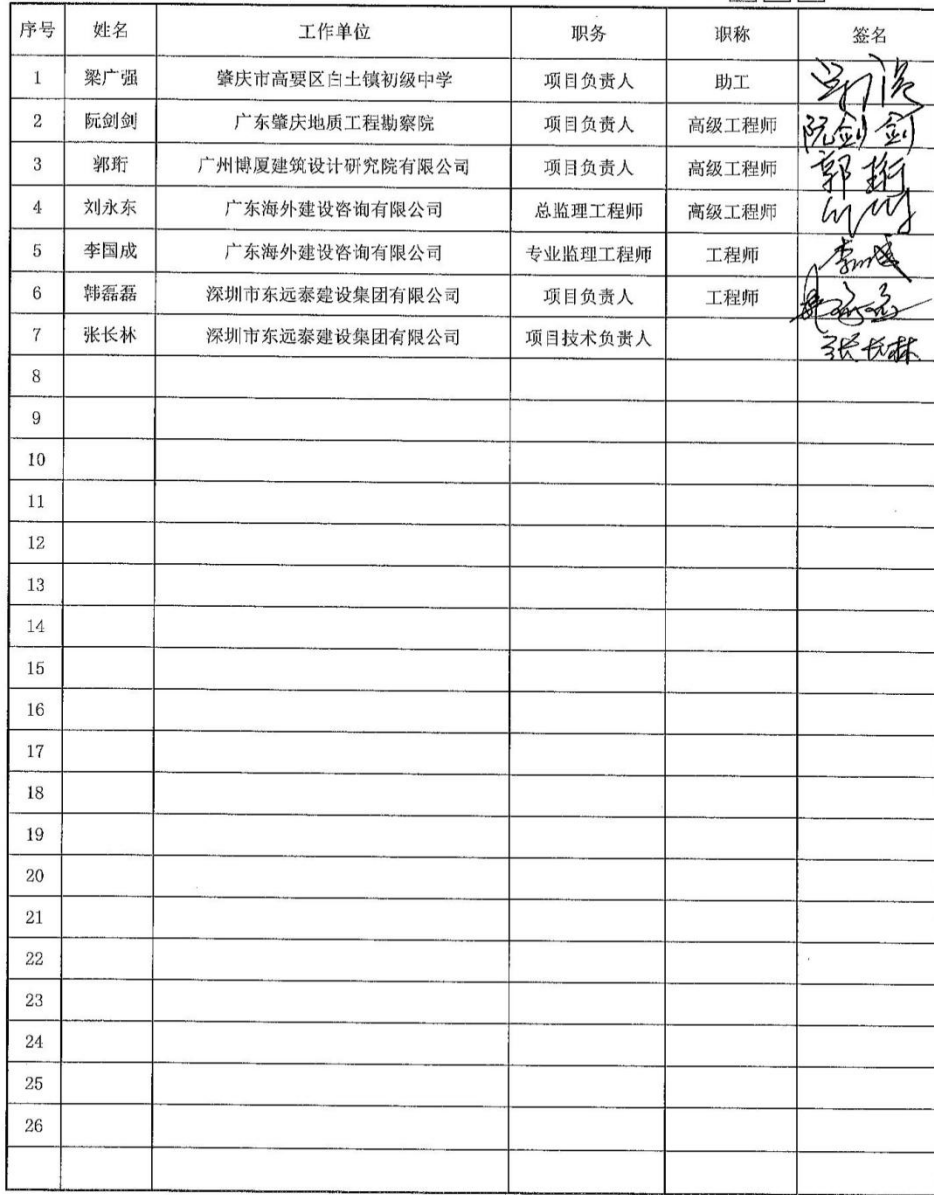 序号 姓名 工作单位 职务 职称 签名
1 梁广强 肇庆市高要区白土镇初级中学 项目负责人 助工
2 阮剑剑 广东肇庆地质工程勘察院 项目负责人 高级工程师 阮剑剑
3 郭珩 广州博厦建筑设计研究院有限公司 项目负责人 高级工程师 郭珩
4 刘永东 广东海外建设咨询有限公司 总监理工程师 高级工程师
5 李国成 广东海外建设咨询有限公司 专业监理工程师 工程师
6 韩磊磊 深圳市东远泰建设集团有限公司 项目负责人 工程师
7 张长林 深圳市东远泰建设集团有限公司 项目技术负责人 张长林
8
9
10
11
12
13
14
15
16
17
18
19
20
21
22
23
24
25
26